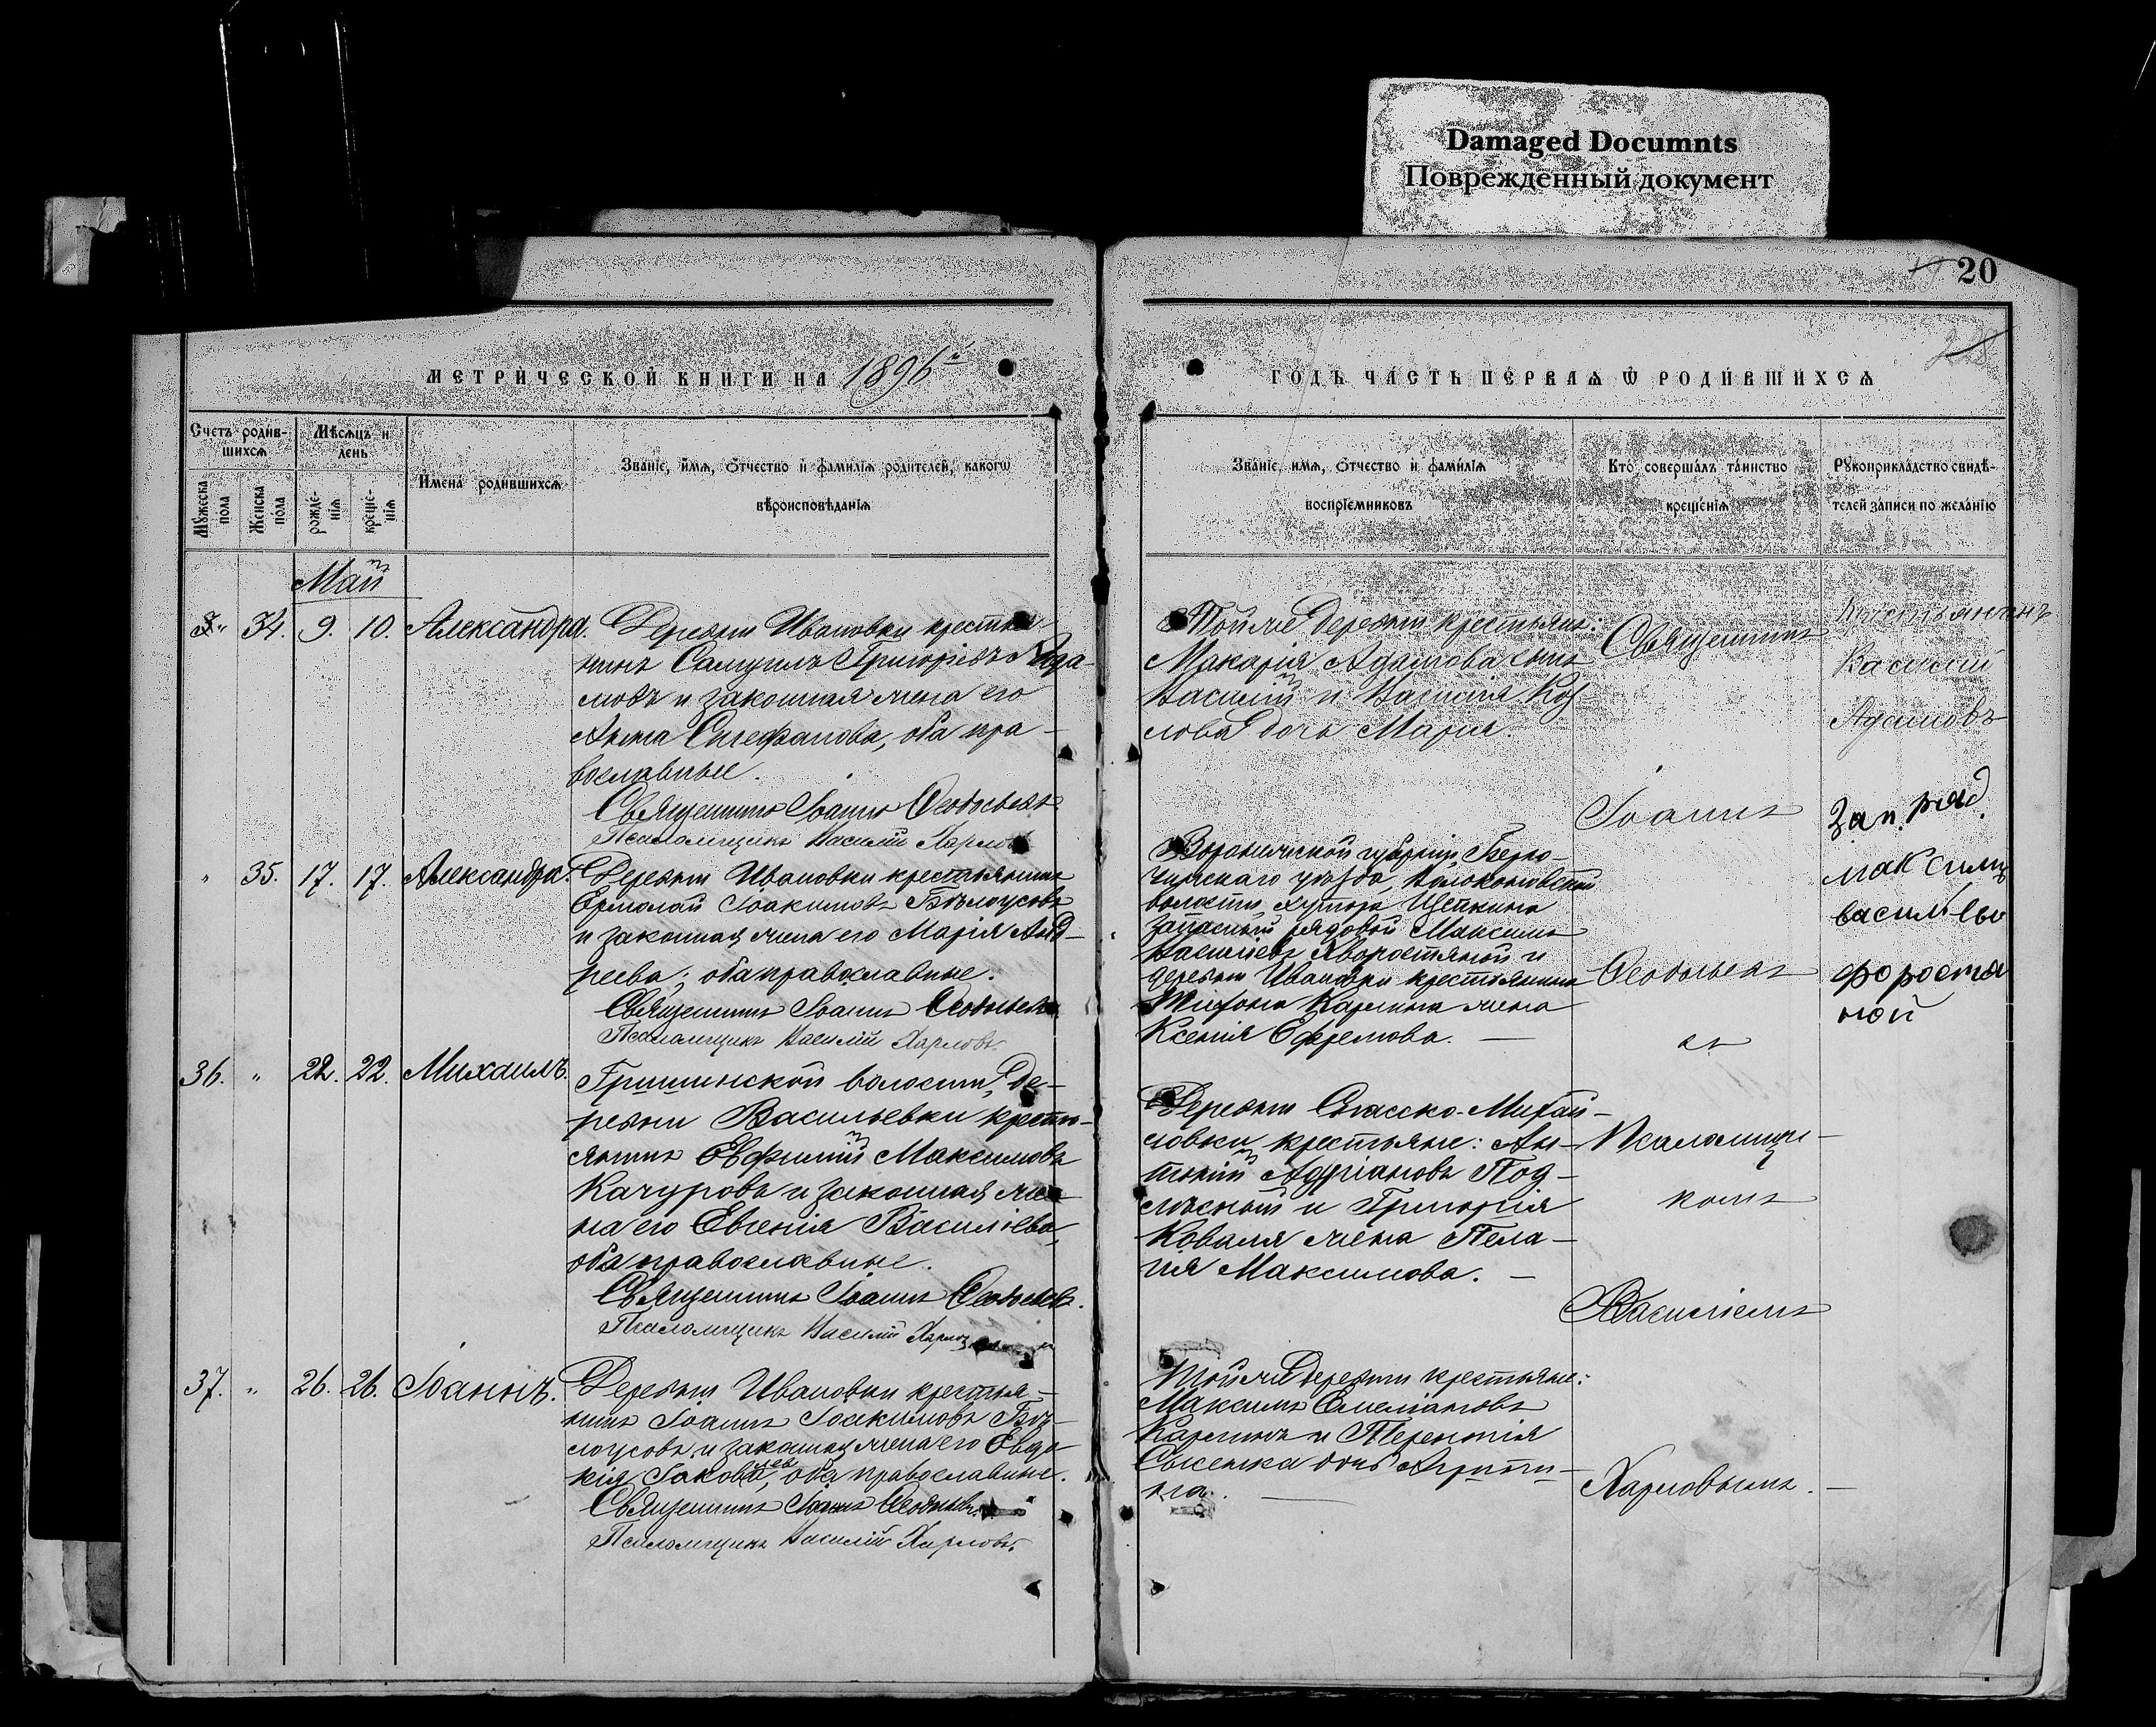 Damaged Documnts
Поврежденный документ
20
МЕТРИЧЕСКОЙ КНИГИ НА 1896й
ГОДЪ ЧАСТЬ ПЕРВАѦ Ѿ РОДИВШИХСѦ
Счетъ родив-
шихсѧ
Мѣсѧцъ и
день
Имена родившихсѧ
Званіе, имѧ, отчество и фамиліѧ родителей, какогѡ
вѣроисповѣданіѧ
Мꙋжеска
пола
Женска
пола
рожде-
ніѧ
креще-
ніѧ
Званіе, имѧ, отчество и фамиліѧ
воспріемниковъ
Кто совершалъ таинство
крещеніѧ
Рꙋкоприкладство свидѣ-
телей записи по желанію
Май
34. 9. 10. Александра.
Деревни Ивановки крестья-
нинъ Самуилъ Григорьевъ Ада-
мовъ и законная жена его
Анна Стефанова, оба пра-
вославные.
Священникъ Іоаннъ Ѳеодосьевъ
Псаломщикъ Василій Харловъ
Той же деревни крестьяне:
Макарія Адамова сынъ
Василій и Василія Коз-
лова дочь Марія.
Священникъ
Іоаннъ
Крестьянинъ
Василий
Адамовъ
" 35. 17. 17. Александра.
Деревни Ивановки крестьянинъ
Ермолай Іоакимовъ Бѣлоусовъ
и законная жена его Марія Анд-
реева; оба православные.
Священникъ Іоаннъ Ѳеодосьевъ
Псаломщикъ Василій Харловъ
Воронежской губерніи, Бирю-
ченскаго уѣзда, Волоконовской
волости, хутора Щепкина
запасный рядовой Максимъ
Васильевъ Хворостяной и
деревни Ивановки крестьянина
Карпина жена
Ксенія Ефремова.
Ѳеодосьевъ
съ
Зап. ряд.
максимъ
василіво
форостя
ной
36. " 22. 22. Михаилъ.
Гришинской волости, де-
ревни Васильевки кресть-
янинъ Евфимій Максимовъ
Качуровъ и законная же-
на его Евгенія Васильева,
оба православные.
Священникъ Іоаннъ Ѳеодосьевъ.
Псаломщикъ Василій Харловъ
Деревни Спасско-Михай-
ловки крестьяне: Ан-
тоній Адріановъ Под-
лѣсный и Григорія
Коваля жена Пела-
гія Максимова.
Псаломщи-
комъ
Василіемъ
37. " 26. 26. Іоаннъ.
Деревни Ивановки крестья-
нинъ Іоаннъ Іоакимовъ Бѣ-
лоусовъ и законная жена его Евдо-
кія Іаковлева, оба православные.
Священникъ Іоаннъ Ѳеодосьевъ.
Псаломщикъ Василій Харловъ.
Той же деревни крестьяне:
Максимъ Емеліановъ
Карпинъ и Терентія
дочь Агрипи-
на.
Харловымъ.